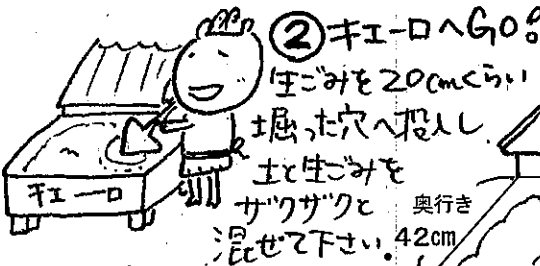 ② キエーロへGO!
生ごみを20cmくらい
掘った穴へ投入し
土と生ごみを
ザクザクと
混ぜて下さい.
キエーロ
奥行き
42cm